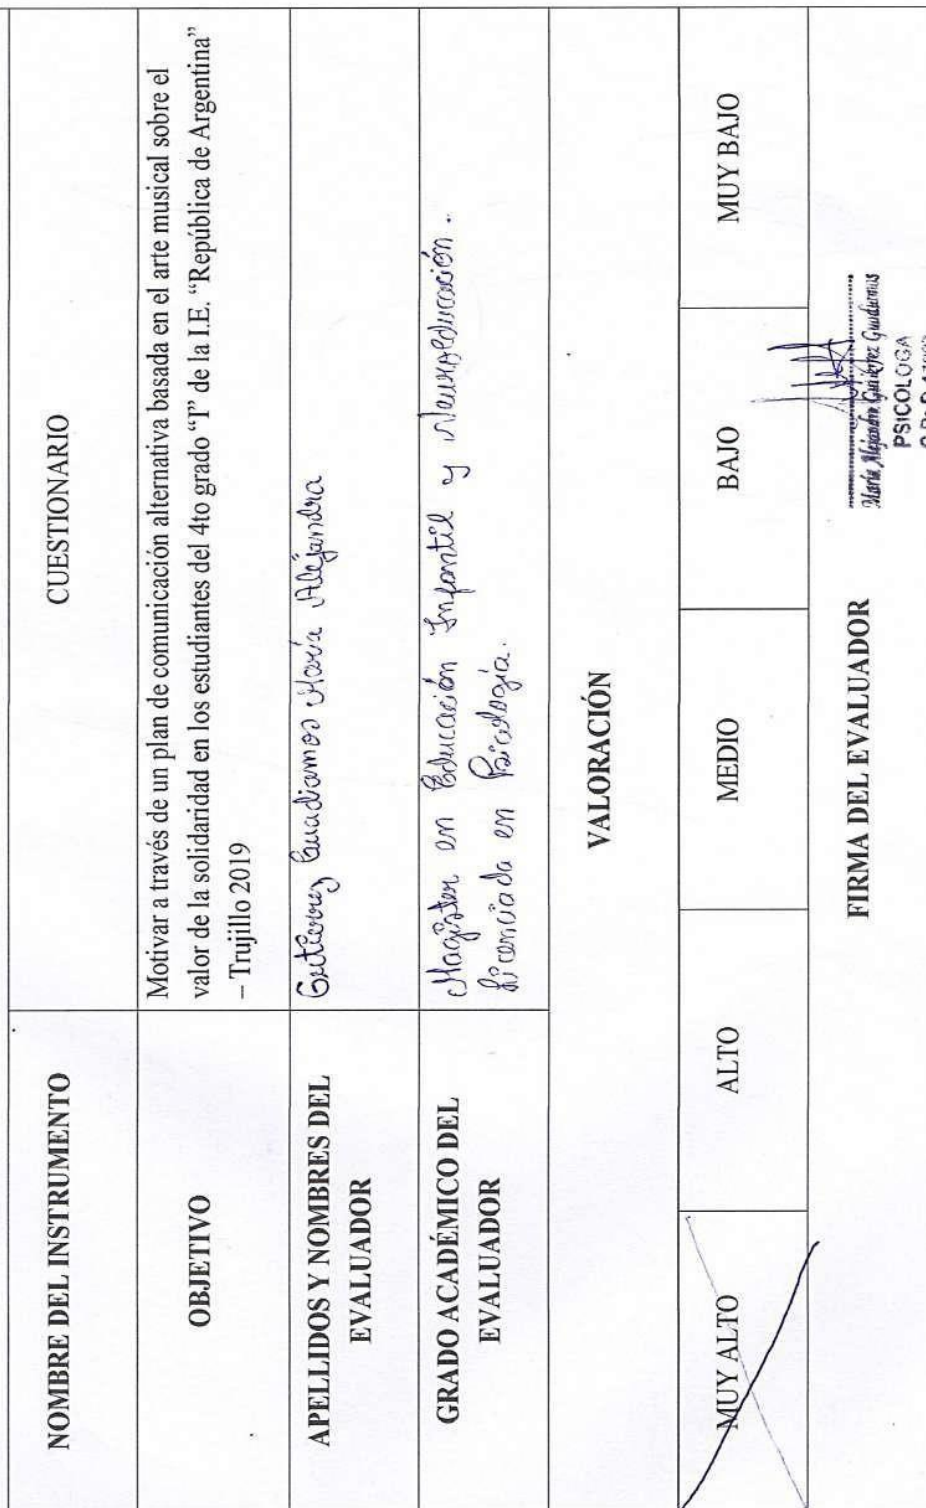 NOMBRE DEL INSTRUMENTO
CUESTIONARIO
OBJETIVO
Motivar a través de un plan de comunicación alternativa basada en el arte musical sobre el
valor de la solidaridad en los estudiantes del 4to grado “I” de la I.E. “República de Argentina”
– Trujillo 2019
APELLIDOS Y NOMBRES DEL
EVALUADOR
Gutierrez Guadiamos María Alejandra
GRADO ACADÉMICO DEL
EVALUADOR
Magister en Educación Infantil y Neuroeducación.
Licenciada en Psicología.
VALORACIÓN
MUY ALTO
ALTO
MEDIO
BAJO
MUY BAJO
FIRMA DEL EVALUADOR
María Alejandra Gutiérrez
PSICOLOGA